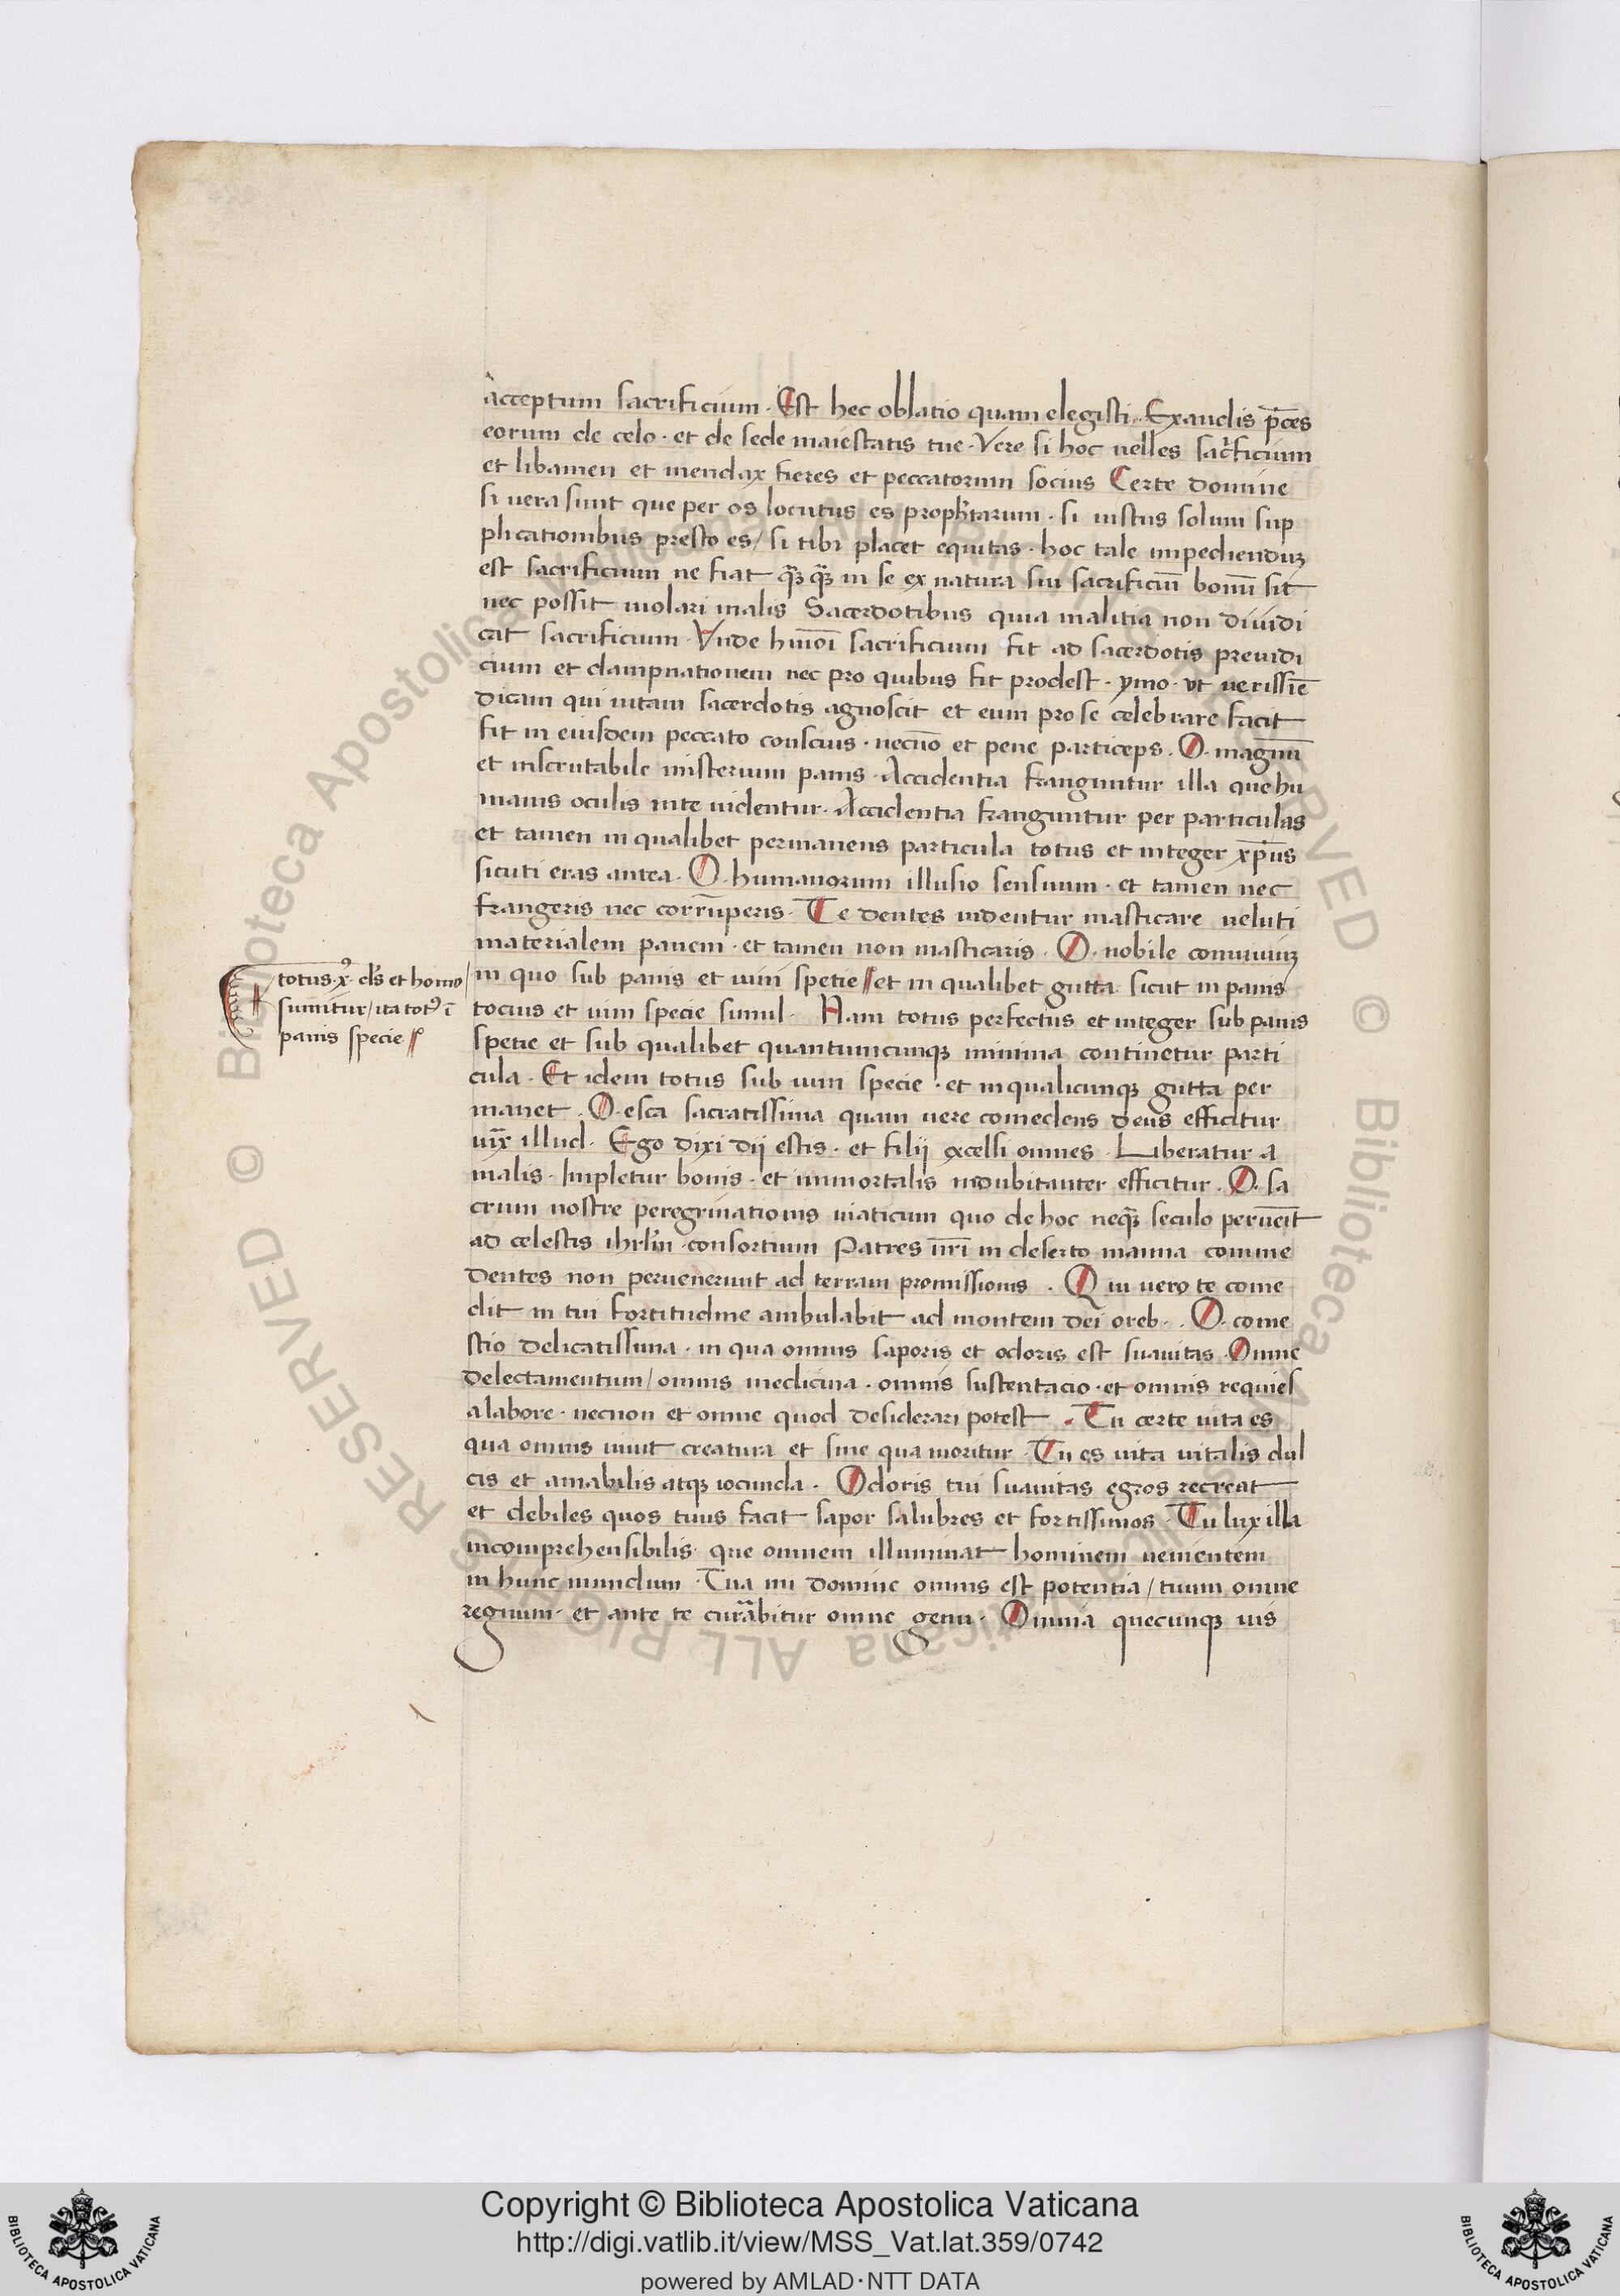 acceptum sacrificium. Est hec oblatio quam elegisti. Exaudis p̄ces
eorum de celo. et de sede maiestatis tue. Vere si hoc uelles sacͥficium
et libamen et mendax fieres et peccatorum socius Certe domine
si uera sunt que per os locutus es prophetarum. si iustus solum sup
plicationibus presto es/ si tibi placet equitas. hoc tale impedienduꝫ
est sacrificium ne fiat in se ex natura sui sacrificiū bonū sit
nec possit uiolari malis Sacerdotibus quia malitia non diiudi
cat sacrificium. Vnde hmōi sacrificium fit ad sacerdotis preiudi
cium et dampnationem nec pro quibus fit prodest. ymo. ut uerissīe
dicam qui uitam sacerdotis agnoscit et eum pro se celebrare facit
fit in eiusdem peccato conscius. necnō et pene particeps. O. magnū
et inscrutabile misterium panis. Accidentia franguntur illa que hu
manis oculis in te uidentur. Accidentia franguntur per particulas
et tamen in qualibet permanens particula totus et integer xp̄us
sicuti eras antea. O. humanorum illusio sensuum. et tamen nec
frangeris nec corrūperis. Te dentes uidentur masticare ueluti
materialem panem. et tamen non masticaris. O. nobile conuiuiuꝫ
in quo sub panis et uini spetie // et in qualibet gutta sicut in panis
totus. x̄ꝰ. d̄s et homo/
sumitur/ ita totꝰ ī
panis specie //
tocius et uini specie simul. Nam totus perfectus et integer sub panis
spetie et sub qualibet quantumcunqꝫ minima continetur parti
cula. Et idem totus sub uini specie. et in qualicunqꝫ gutta per
manet. O. esca sacratissima quam uere comedens deus efficitur
iux̄ illud. Ego dixi dij estis. et filij excelsi omnes. Liberatur a
malis. Impletur bonis. et immortalis indubitanter efficitur. O. sa
crum nostre peregrinationis uiaticum quo de hoc neqꝫ seculo peruēit
ad celestis ihrl̄m consortium Patres nr̄i in deserto manna comme
dentes non peruenerunt ad terram promissionis. Qui uero te come
dit in tui fortitudine ambulabit ad montem dei oreb.. O. come
stio delicatissima. in qua omnis saporis et odoris est suauitas. Omne
delectamentum/ omnis medicina. omnis sustentacio. et omnis requies
a labore. necnon et omne quod desiderari potest. Tu certe uita es
qua omnis uiuit creatura et sine qua moritur. Tu es uita uitalis dul
cis et amabilis atqꝫ iocunda. Odoris tui suauitas egros recreat
et debiles quos tuus facit sapor salubres et fortissimos. Tu lux illa
incomprehensibilis. que omnem illuminat hominem uenientem
in hunc mundum. Tua mi domine omnis est potentia/ tuum omne
regnum. et ante te curuabitur omne genu. Omnia quecunqꝫ uis
© Biblioteca Apostolica Vaticana ALL RIGHTS RESERVED © Biblioteca Apostolica Vaticana ALL RIGHTS RESERVED
Copyright © Biblioteca Apostolica Vaticana
http://digi.vatlib.it/view/MSS_Vat.lat.359/0742
powered by AMLAD·NTT DATA
BIBLIOTECA APOSTOLICA VATICANA
BIBLIOTECA APOSTOLICA VATICANA